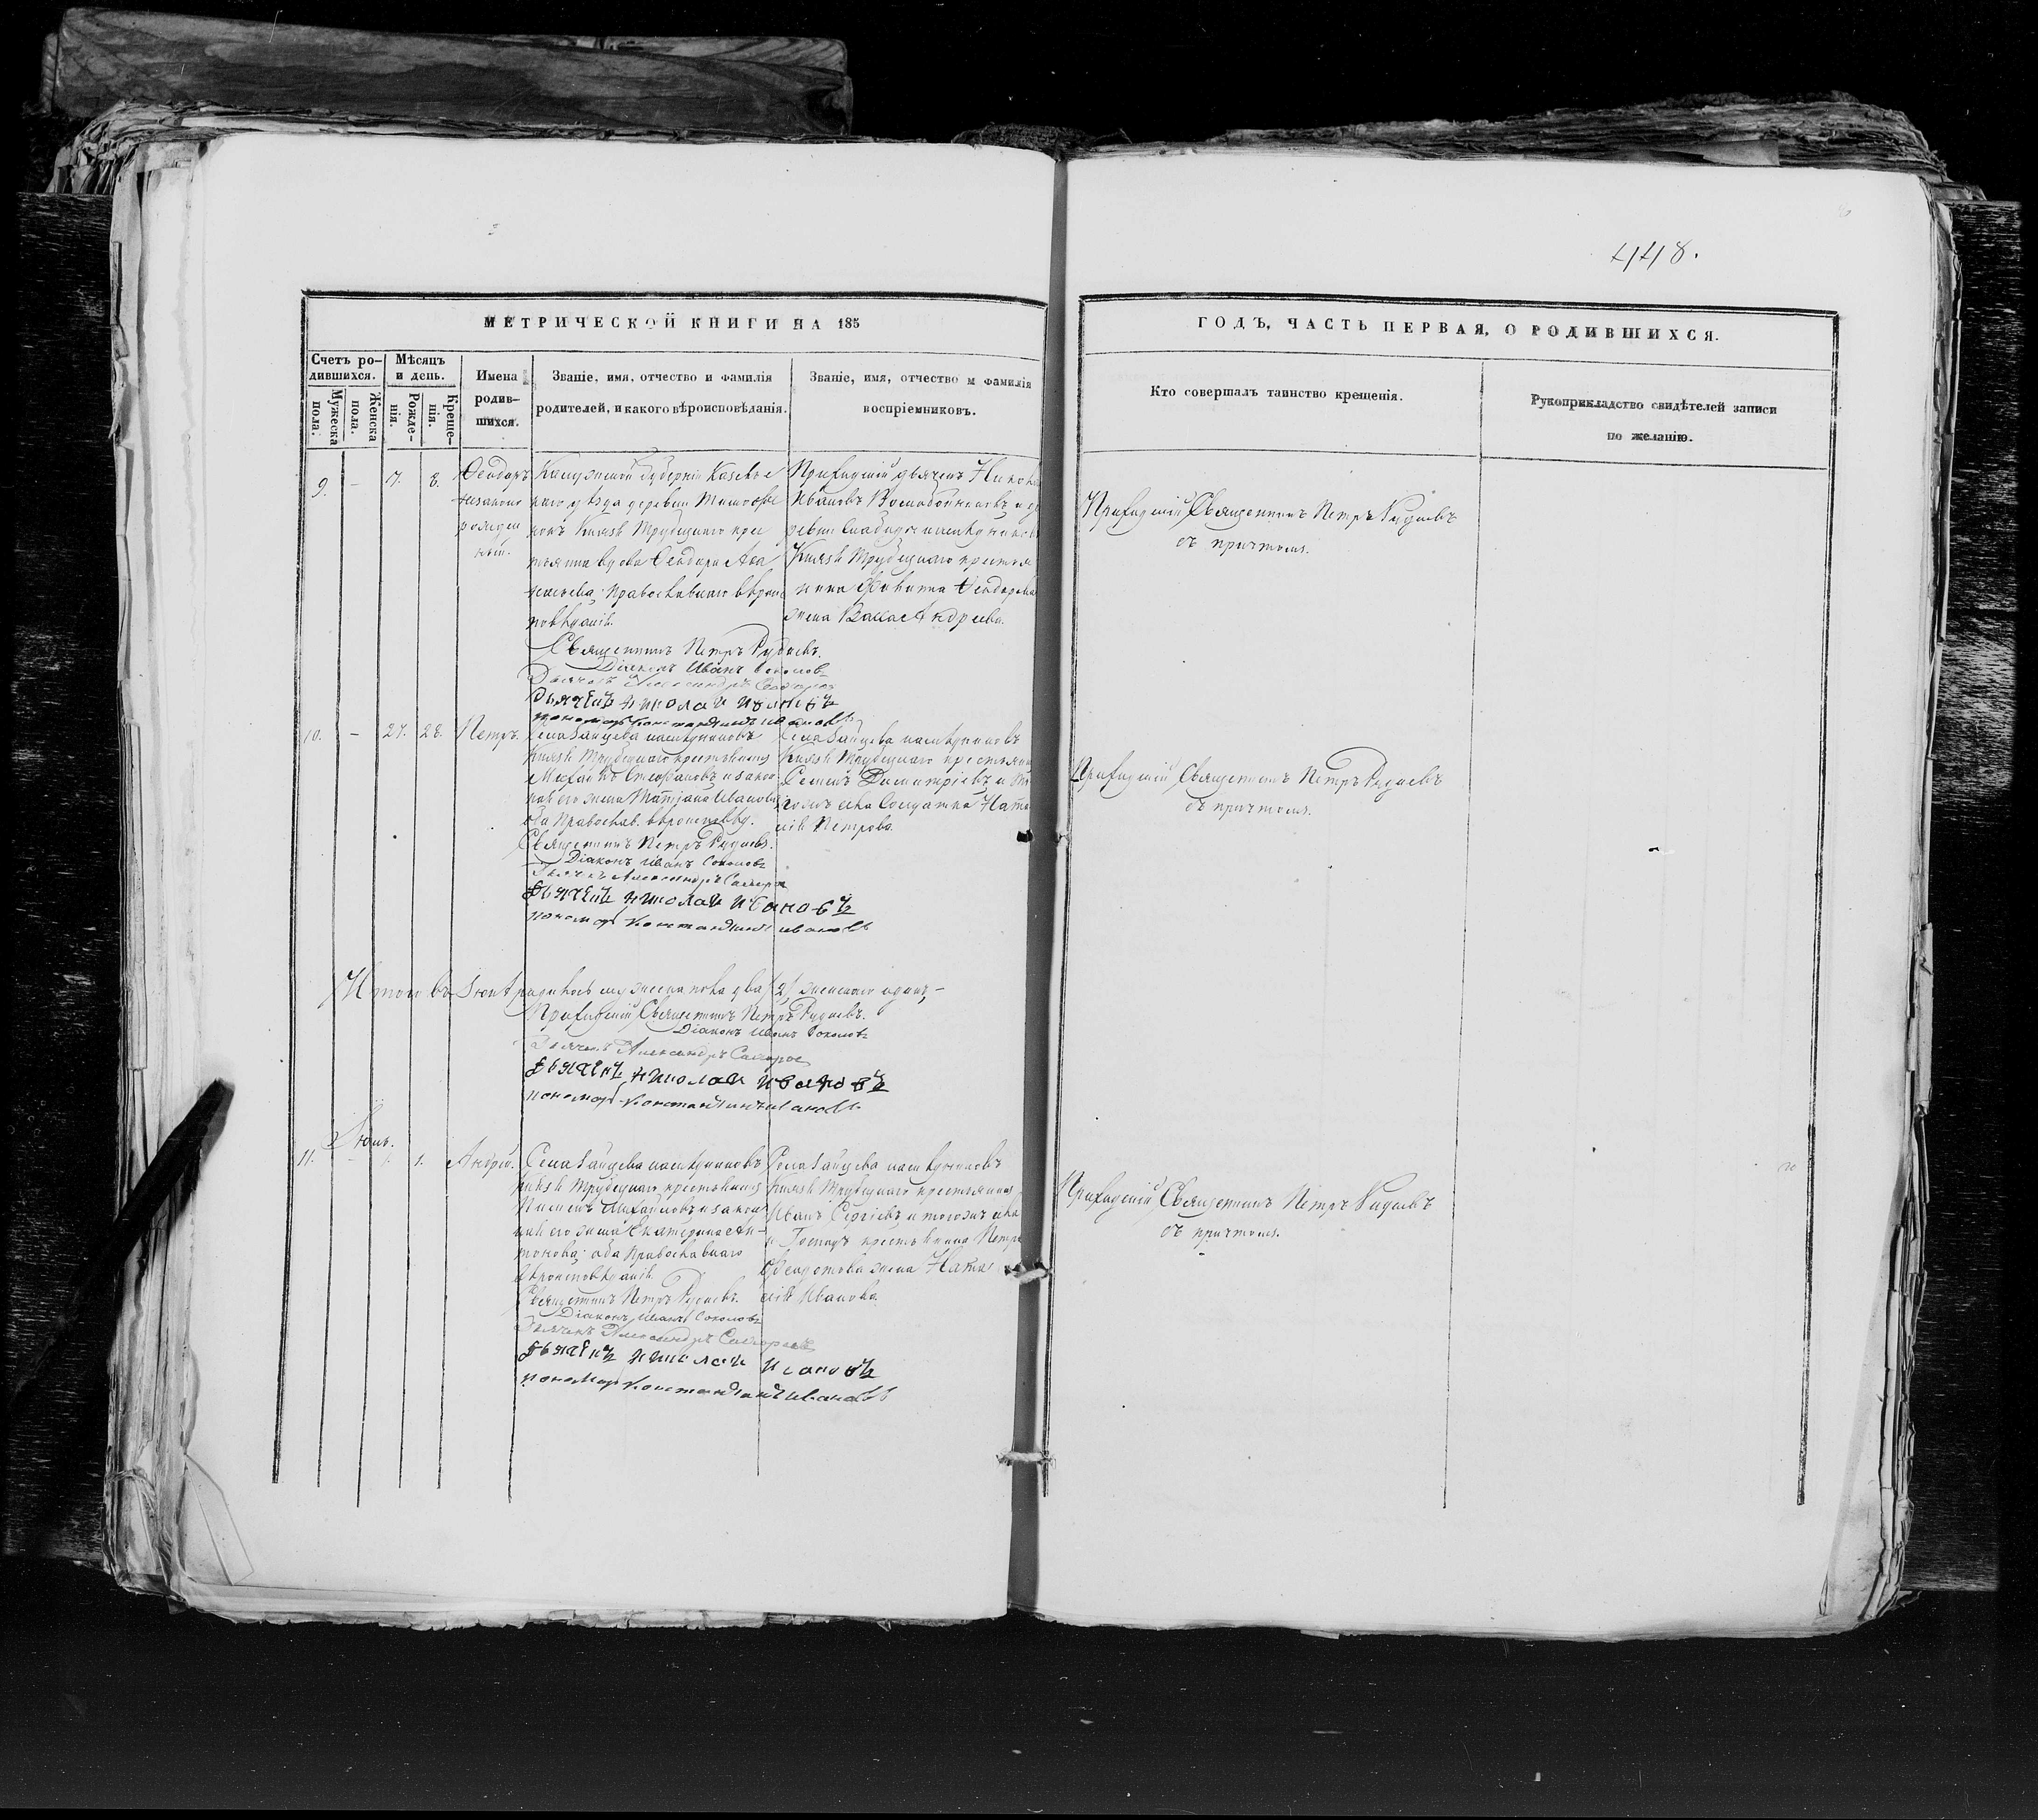 448.
МЕТРИЧЕСКОЙ КНИГИ НА 185
Счетъ ро-
дившихся.
Мужеска
пола.
Женска
пола.
Мѣсяцъ
и день.
Рожде-
нія.
Креще-
нія.
Имена
родив-
шихся.
Званіе, имя, отчество и фамилія
родителей, и какого вѣроисповѣданія.
Званіе, имя, отчество и фамилія
воспріемниковъ.
ГОДЪ, ЧАСТЬ ПЕРВАЯ, О РОДИВШИХСЯ.
Кто совершалъ таинство крещенія.
Рукоприкладство свидѣтелей записи
по желанію.
9. – 7. 8.
Ѳеодоръ
незаконо
рожден
ный.
Калужской Губерніи
уѣзда деревни
Князя Трубецкаго крес
вдова Ѳеодора
Православнаго вѣроис
повѣданія.
Священникъ Петръ Рудневъ.
Діаконъ Иванъ Соколовъ
Дьячекъ Александръ
Дьячекъ Николай Ивановъ
пономарь Константинъ Ивановъ
Приходскій дьячекъ Никола
Ивановъ
Князя Трубецкаго крестья
нина Ѳеодорова
жена Васса Андреева.
Приходскій Священникъ Петръ Рудневъ
съ причтомъ.
10. – 27. 28. Петръ.
Села Зайцева наслѣдниковъ
Князя Трубецкаго крестьянинъ
Михаилъ Стефановъ и закон
ная его жена Татіана Иванова
оба Православ. вѣроисповѣд.
Священникъ Петръ Рудневъ.
Діаконъ Иванъ Соколовъ
Дьячекъ Александръ
Дьячекъ Николай Ивановъ
пономарь Константинъ Ивановъ
Села Зайцева наслѣдниковъ
Князя Трубецкаго крестьянин
Семенъ Димитріевъ и
села Солдатка Ната
лія Петрова.
Приходскій Священникъ Петръ Рудневъ
съ причтомъ.
Итого въ Іюнѣ родилось мужеска пола два /2/ женскаго одинъ,–
Приходскій Священникъ Петръ Рудневъ.
Діаконъ Иванъ Соколовъ
Дьячекъ Александръ
Дьячекъ Николай Ивановъ
пономарь Константинъ Ивановъ
Іюль.
11. – 1. 1. Андрей.
Села Зайцева наслѣдниковъ
Князя Трубецкаго крестьянинъ
Михайловъ и закон
ная его жена Екатерина Ан
тонова оба Православнаго
вѣроисповѣданія.
Священникъ Петръ Рудневъ.
Діаконъ Иванъ Соколовъ
Дьячекъ Александръ
Дьячекъ Николай Ивановъ
пономарь Константинъ Ивановъ
Села Зайцева наслѣдниковъ
Князя Трубецкаго крестьянинъ
Иванъ Сергіевъ и тогожъ села
и Господъ крестьянина Петра
жена Ната
лія Иванова.
Приходскій Священникъ Петръ Рудневъ
съ причтомъ.